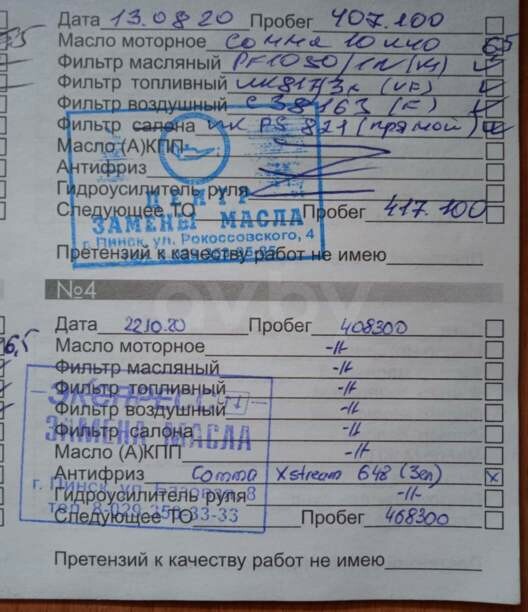 Дата 13.08.20 Пробег 407.100
Масло моторное Comma 10W40 6,5
Фильтр масляный PF1050/1N(K)
Фильтр топливный WK 817/3x (VF)
Фильтр воздушный C 38163 (F)
Фильтр салона (прямой)
Масло (А)КПП
Антифриз
Гидроусилитель руля
Следующее ТО Пробег 417.100
ЦЕНТР
ЗАМЕНЫ МАСЛА
г. Пинск, ул. Рокоссовского, 4
Претензий к качеству работ не имею
№4
av.by
Дата 22.10.20 Пробег 408300
Масло моторное -||-
6,5
Фильтр масляный -||-
Фильтр топливный -||-
Фильтр воздушный -||-
Фильтр салона -||-
Масло (А)КПП -||-
Антифриз Comma Xstream G48 (Зел) x
Гидроусилитель руля -||-
Следующее ТО Пробег 468300
ЭКСПРЕСС
ЗАМЕНА МАСЛА
г. Пинск, ул. 8
тел. 8-029-350-33-33
Претензий к качеству работ не имею